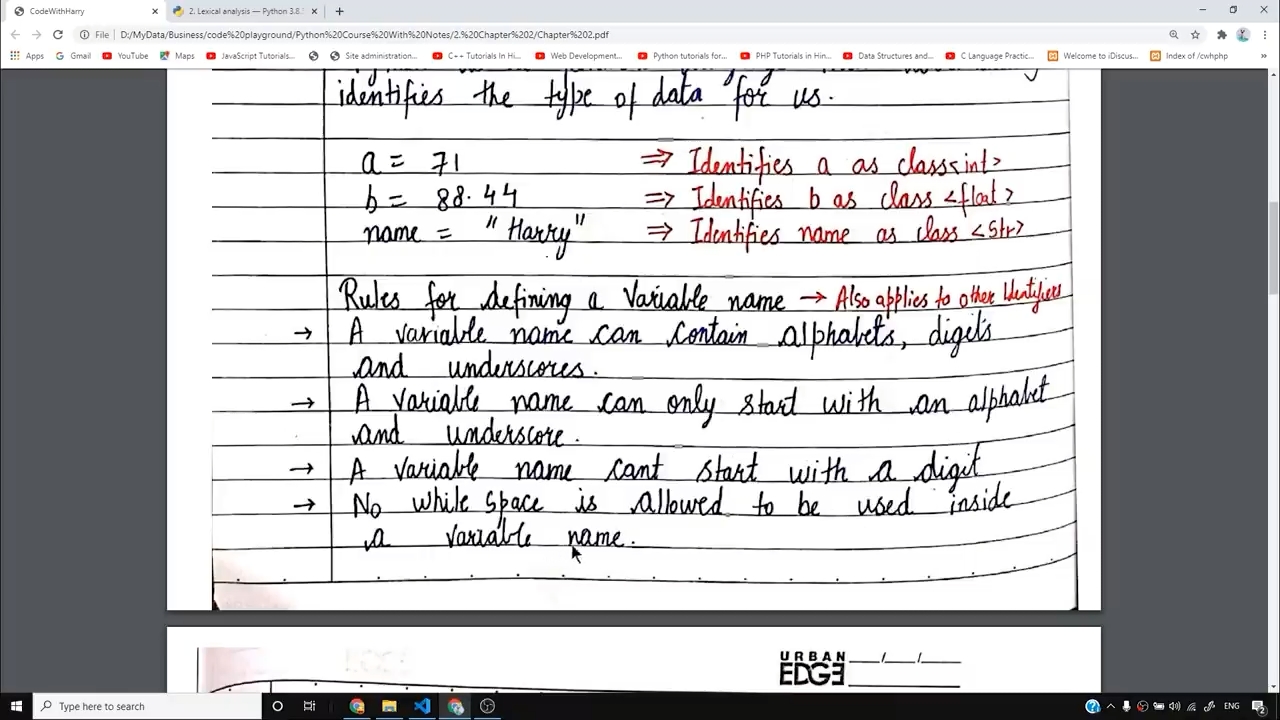 CodeWithHarry
2. Lexical analysis — Python 3.8.
File
D:/MyData/Business/code%20playground/Python%20Course%20With%20Notes/2.%20Chapter%202/Chapter%202.pdf
Apps
Gmail
YouTube
Maps
JavaScript Tutorials...
Site administration...
C++ Tutorials In Hi...
Web Development...
Python tutorials for...
PHP Tutorials in Hi...
Data Structures and...
C Language Practic...
Welcome to iDiscus...
Index of /cwhphp
identifies the type of data for us.
a = 71 ⇒ Identifies a as class<int>
b = 88.44 ⇒ Identifies b as class <float>
name = "Harry" ⇒ Identifies name as class <str>
Rules for defining a Variable name → Also applies to other Identifiers
→ A variable name can contain alphabets, digits
and underscores.
→ A variable name can only start with an alphabet
and underscore.
→ A variable name cant start with a digit
→ No while space is allowed to be used inside
a variable name.
URBAN
EDGE __/__/__
Type here to search
ENG